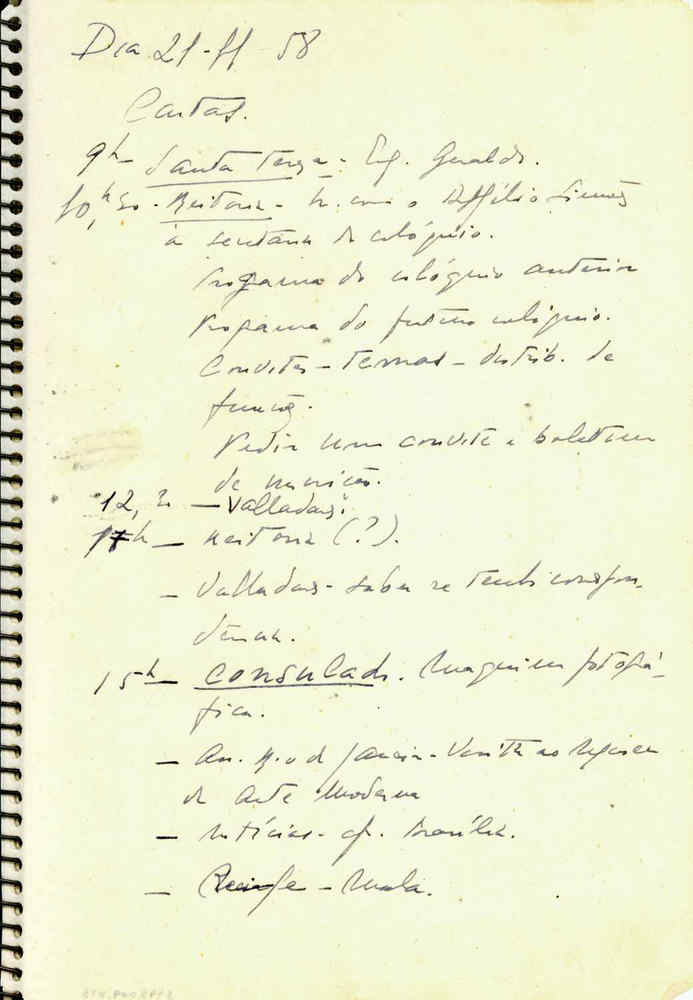 Dia 21-11-58
Cartas.
9h - Santa Tereza - Eg. Geraldo.
10,h30 - Reitoria - h. com o Simões
à secretária do colóquio.
Programa do colóquio anterior
Programa do futuro colóquio.
Convites - temas - distrib. de
funções.
Pedir um convite e boletim
de inscrição.
12,30 - Valladares
17h - Reitoria (?).
- Valladares - saber se tenho correspon-
dência.
15h - Consulado. Máquina fotográ-
fica.
- Rio de Janeiro - Visita ao Museu
de Arte Moderna
- Notícias - Brasília.
- Recife - Mala.